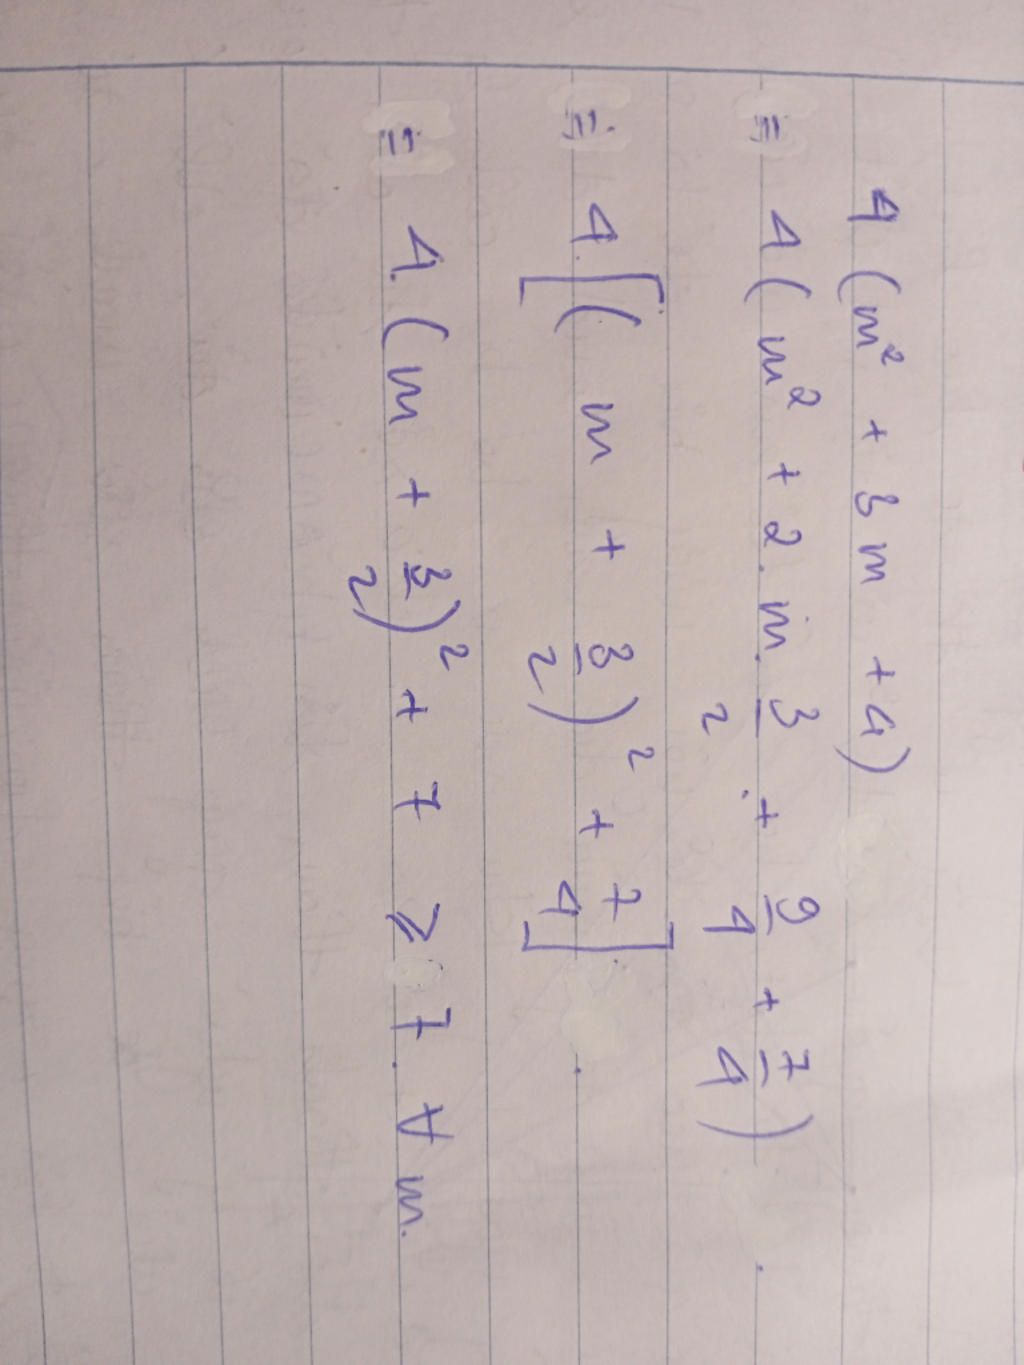 4 (m² + 3m + 4)
= 4 (m² + 2.m.3/2 + 9/4 + 7/4)
= 4 [(m + 3/2)² + 7/4]
= 4 (m + 3/2)² + 7 ≥ 7 ∀ m.